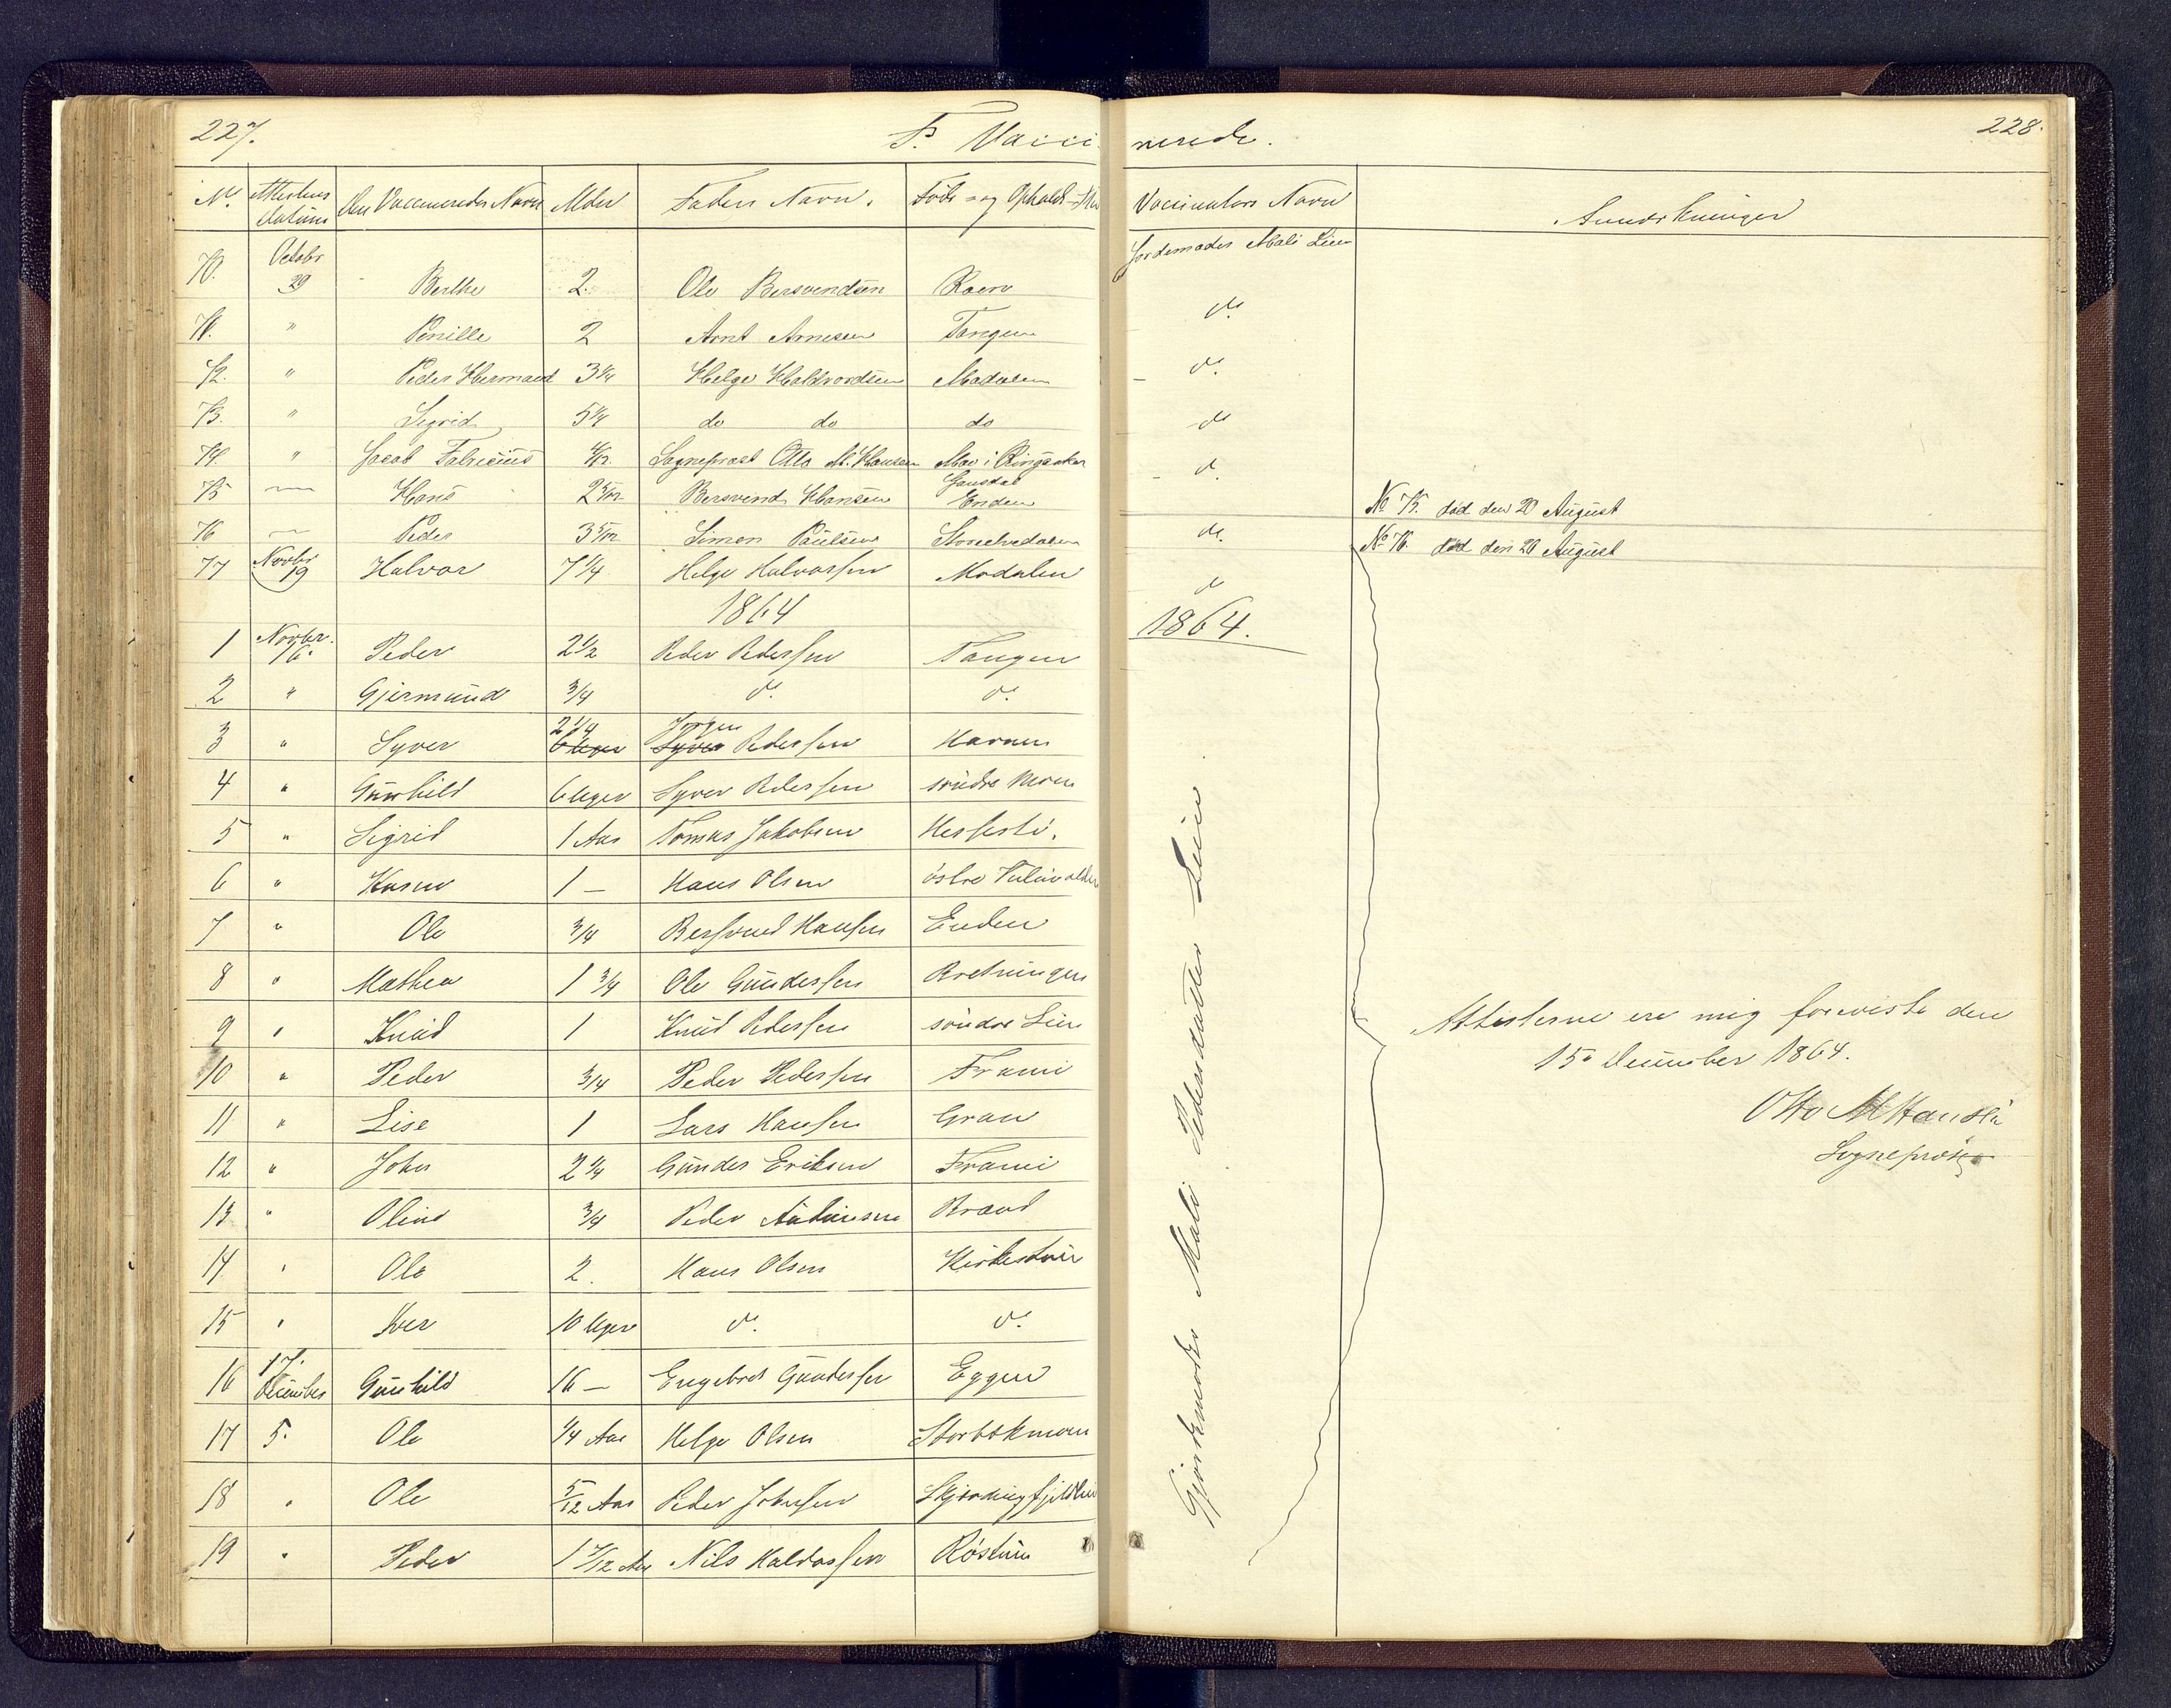 227.
F. Vacci
nerede.
228.
No. Attestens Datum Den Vaccineredes Navn Alder Faders Navn. Føde- og Opholds-
Vaccinators Navn Anmærkninger
Jordemoder Mali Lien
70. Octobr 29 Berthe 2. Ole Bersvendsen Roen
do
71. " Pernille 2 Arnt Arnesen Tangen
72. " Peder 3 1/4 Helge Haldvordsen Modalen
do
73. " Sigrid 5 1/4 do do do
do
74. " Jacob Fabricius Sogneprest Otto M. Hansen Moe i Ringsaker
do.
75 — Hans 2 5/12 Bersvend Hansen Gausdal Enden
No 75. død den 20 August
76 — Peder 3 5/12 Simon Paulsen
do. No 76. død den 20 August
77 Novbr 19 Halvor 7 1/4 Helge Halvorsen Modalen
do
1864
1864.
1 Novbr. 16. Peder 2 1/2 Peder Pedersen Tangen
2 " Gjermund 3/4 do. do.
3 " Syver 2 1/4 6 Uger Jørgen Syver Pedersen
4 " Gunhild 6 Uger Syver Pedersen søndre Moen
5 " Sigrid 1 Aar Tomas Jakobsen
6 " Karen 1 — Hans Olsen østre
7 " Ole 3/4 Bersvend Hansen Enden
8 " Mathea 1 3/4 Ole Gundersen Bretningen
9 " Knud 1 Knud Pedersen søndre Lien
10 " Peder 3/4 Peder Pedersen
11 " Lise 1 Lars Hansen Gran
12 " John 2 1/4 Gunder Eriksen
13 " Oline 3/4 Peder Antonsen Brand
14 " Ole 2. Hans Olsen Kirkestuen
15 " Iver 10 Uger do. do.
16 17. December Gunhild 16 — Engebret Gundersen Eggen
17 5. Ole 1/4 Aar Helge Olsen
18 " Ole 5/12 Aar Peder Johnsen
19 " Peder 1 7/12 Aar Nils Haldorsen Røstuen
Gjordemoder Mali Pedersdatter Lien
Attesterne ere mig foreviste den
15. December 1864.
Otto M Hansen
Sogneprest